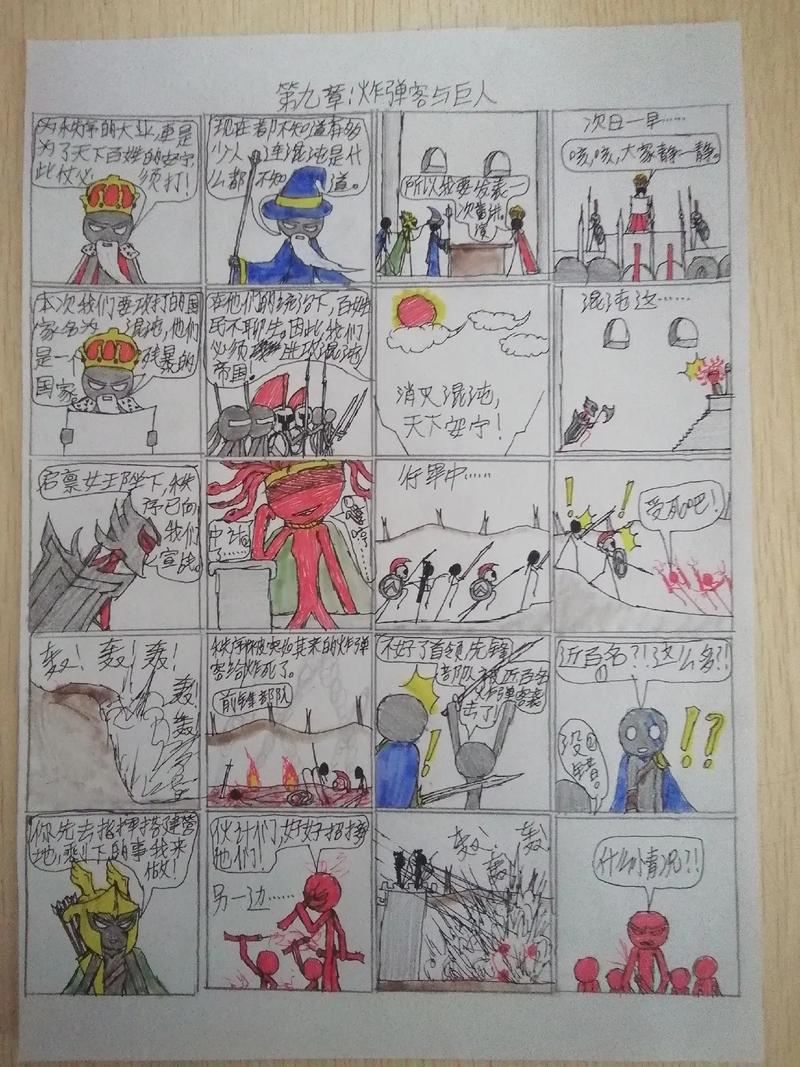 第九章:炸弹客与巨人
为秩序的大业,更是
为了天下百姓的安宁
此仗必须打!
现在都不知道有多
少人连混沌是什
么都不知道。
所以我要发表一
次重讲
次日一早……
咳,咳,大家静一静。
本次我们要攻打的国
家名为混沌,他们
是一个残暴的
国家。
在他们的统治下,百姓
民不聊生。因此我们
必须进攻混沌
帝国。
消灭混沌,
天下安宁!
混沌这……
启禀女王陛下,秩
序已向
我们
宣战。
中计
了……
嘻
哼…
行军中……
受死吧!
轰!轰!轰!
轰!
轰
轰
秩序军被突如其来的炸弹
客给炸死了。
前锋部队
不好了首领,先锋
部队被近百名
炸弹客袭
击了!
近百名?!这么多?!
没
错。
你先去指挥搭建营
地,剩下的事我来
做!
伙计们,好好招待
他们!
另一边……
轰!轰
轰
什么情况?!